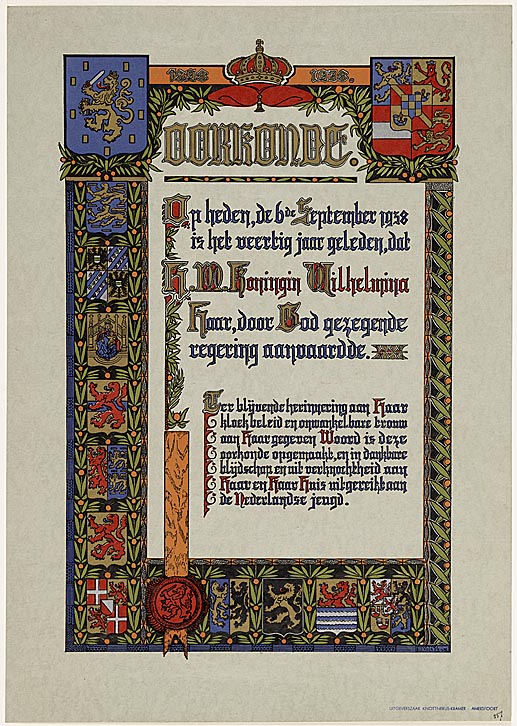 1898 1938.
OORKONDE.
Op heden, de 6de September 1938
is het veertig jaar geleden, dat
H.M. Koningin Wilhelmina
Haar, door God gezegende
regering aanvaardde.
Ter blijvende herinnering aan Haar
kloek beleid en onwankelbare trouw
aan Haar gegeven Woord is deze
oorkonde opgemaakt, en in dankbare
blijdschap en uit verknochtheid aan
Haar en Haar Huis uitgereikt aan
de Nederlandse jeugd.
UITGEVERSZAAK KNOTTNERUS-KRAMER - AMERSFOORT